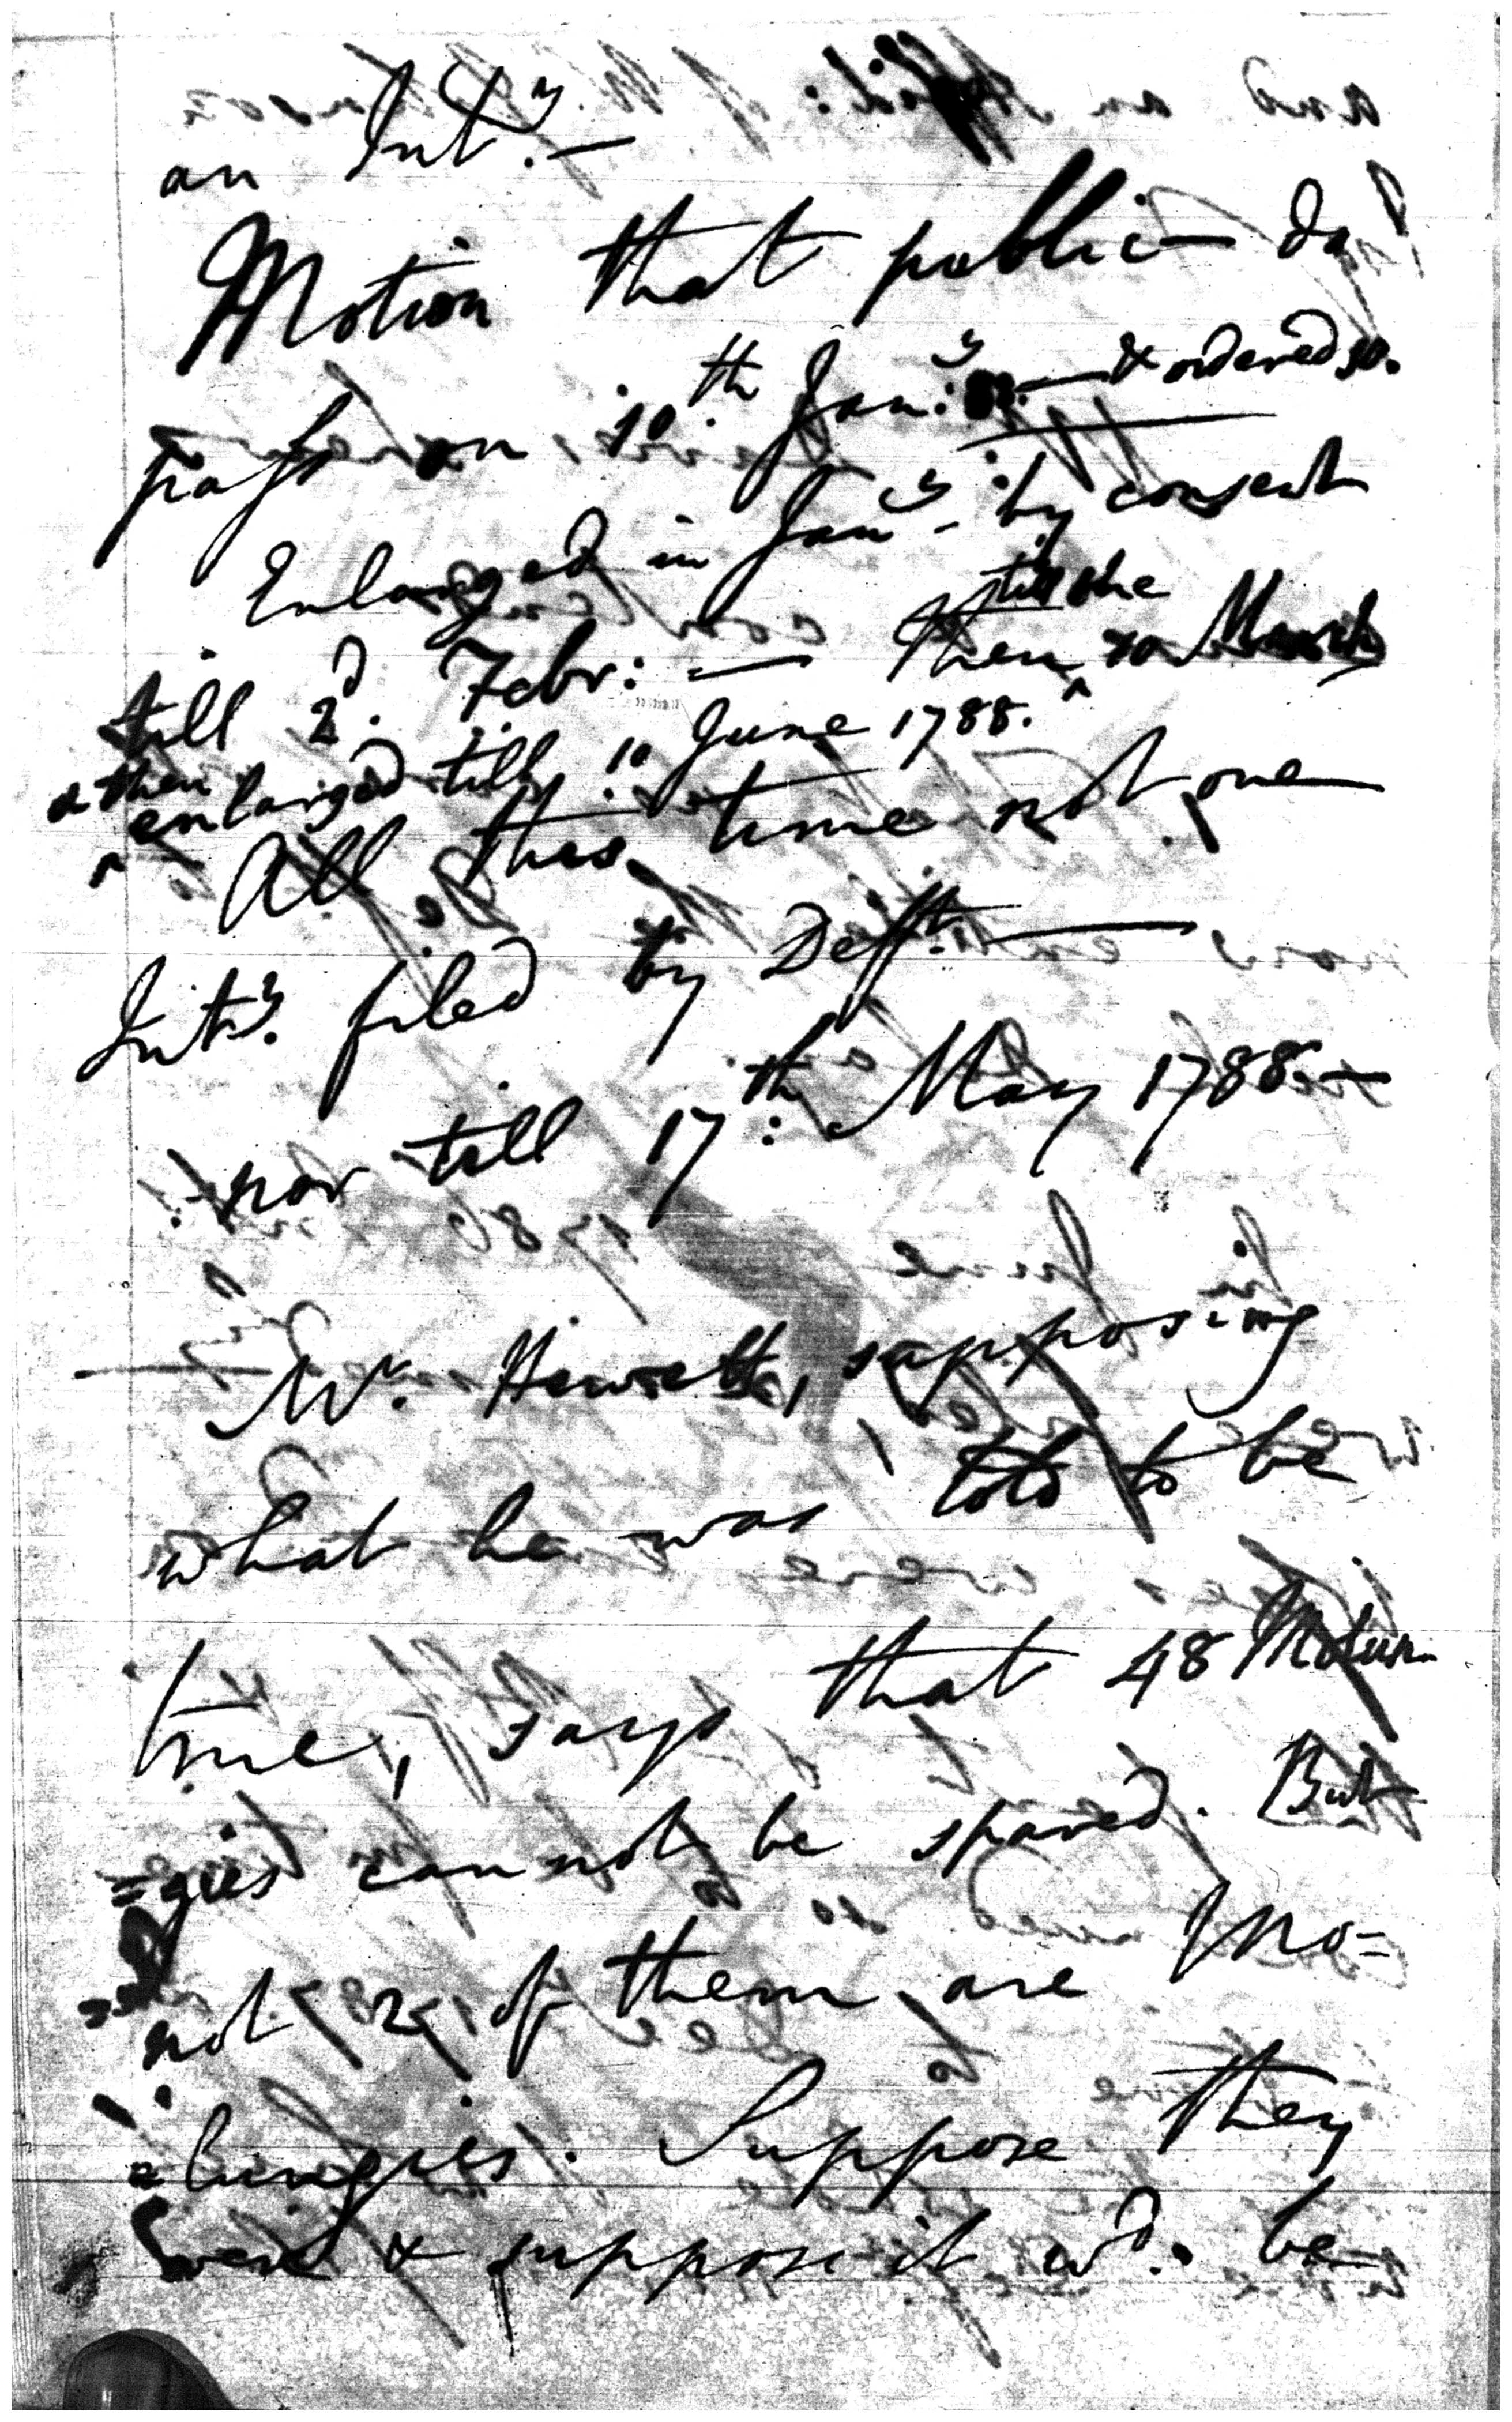 an Int.y —
Motion that public— do
pass on 10.th Jan:y — & ordered so.
Enlarged in Jan.y - by consent
till 2.d Febr: — then ^ till the 10 March
& then
^ enlarged till 10 June 1788.
All this time not one
Int.y filed by Deft. —
nor till 17:th May 1788. —
Mr. Hewett, supposing
what he was told to be
true, says that 48 Molun-
=gies cannot be spared. But
not 2 of them are Mo=
=lungies. Suppose they
were & suppose it wd. be